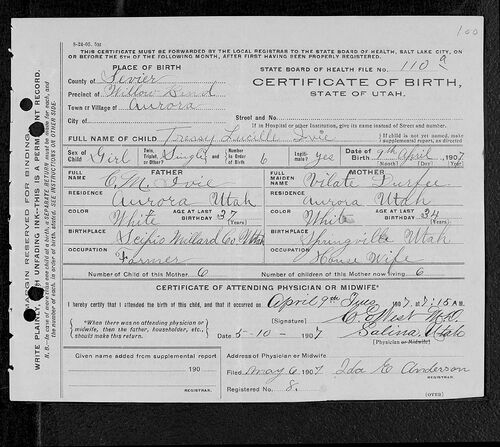 100
8-22-05. 5M
THIS CERTIFICATE MUST BE FORWARDED BY THE LOCAL REGISTRAR TO THE STATE BOARD OF HEALTH, SALT LAKE CITY, ON
OR BEFORE THE 5TH OF THE FOLLOWING MONTH, AFTER FIRST HAVING BEEN PROPERLY REGISTERED.
PLACE OF BIRTH
STATE BOARD OF HEALTH FILE NO. 110 a
County of Sevier
CERTIFICATE OF BIRTH,
Precinct of Willow Bend
STATE OF UTAH.
Town or Village of Aurora
City of
Street and No.
If in Hospital or other Institution, give its name instead of Street and number.
FULL NAME OF CHILD Lucille Ivie
If child is not yet named, make supplemental report, as directed
Sex of Child Girl
Twin, Triplet, or Other? Single and Number in Order of Birth 6
yes
Date of Birth 9th April 1907
(Day) (Year)
FATHER
FULL NAME C. M. Ivie
RESIDENCE Aurora Utah
COLOR White AGE AT LAST BIRTHDAY 37 (Years)
BIRTHPLACE Scipio Millard Co Utah
OCCUPATION Farmer
MOTHER
FULL NAME Vilate Durfee
RESIDENCE Aurora Utah
COLOR White AGE AT LAST BIRTHDAY 34 (Years)
BIRTHPLACE Springville Utah
OCCUPATION House Wife
Number of Child of this Mother 6
Number of Children of this Mother now living 6
CERTIFICATE OF ATTENDING PHYSICIAN OR MIDWIFE*
I hereby certify that I attended the birth of this child, and it occurred on April 9th 1907, 7:15 AM.
*When there was no attending physician or midwife, then the father, householder, etc., should make this return.
(Signature) West M.D.
Date 5-10-1907
Salina, Utah
(Physician or Midwife)
Given name added from supplemental report
190
REGISTRAR.
Address of Physician or Midwife
Filed May 6 1907 Ida E Anderson
REGISTRAR.
Registered No. 8.
(OVER)
MARGIN RESERVED FOR BINDING
WRITE PLAINLY, WITH UNFADING INK—THIS IS A PERMANENT RECORD.
N. B.—In case of more than one child at a birth, a SEPARATE RETURN must be made for each, and the number of each, in order of birth, stated. SEE INSTRUCTIONS ON OTHER SIDE.